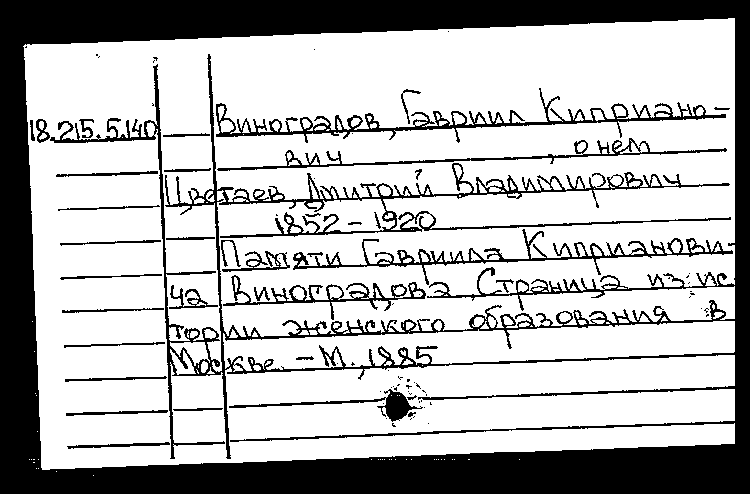 18.215.5.140 Виноградов, Гавриил Киприано-
вич, о нем
Цветаев, Дмитрий Владимирович
1852-1920
Памяти Гавриила Киприанови-
ча Виноградова. Страница из ис
тории женского образования в
Москве. - М., 1885